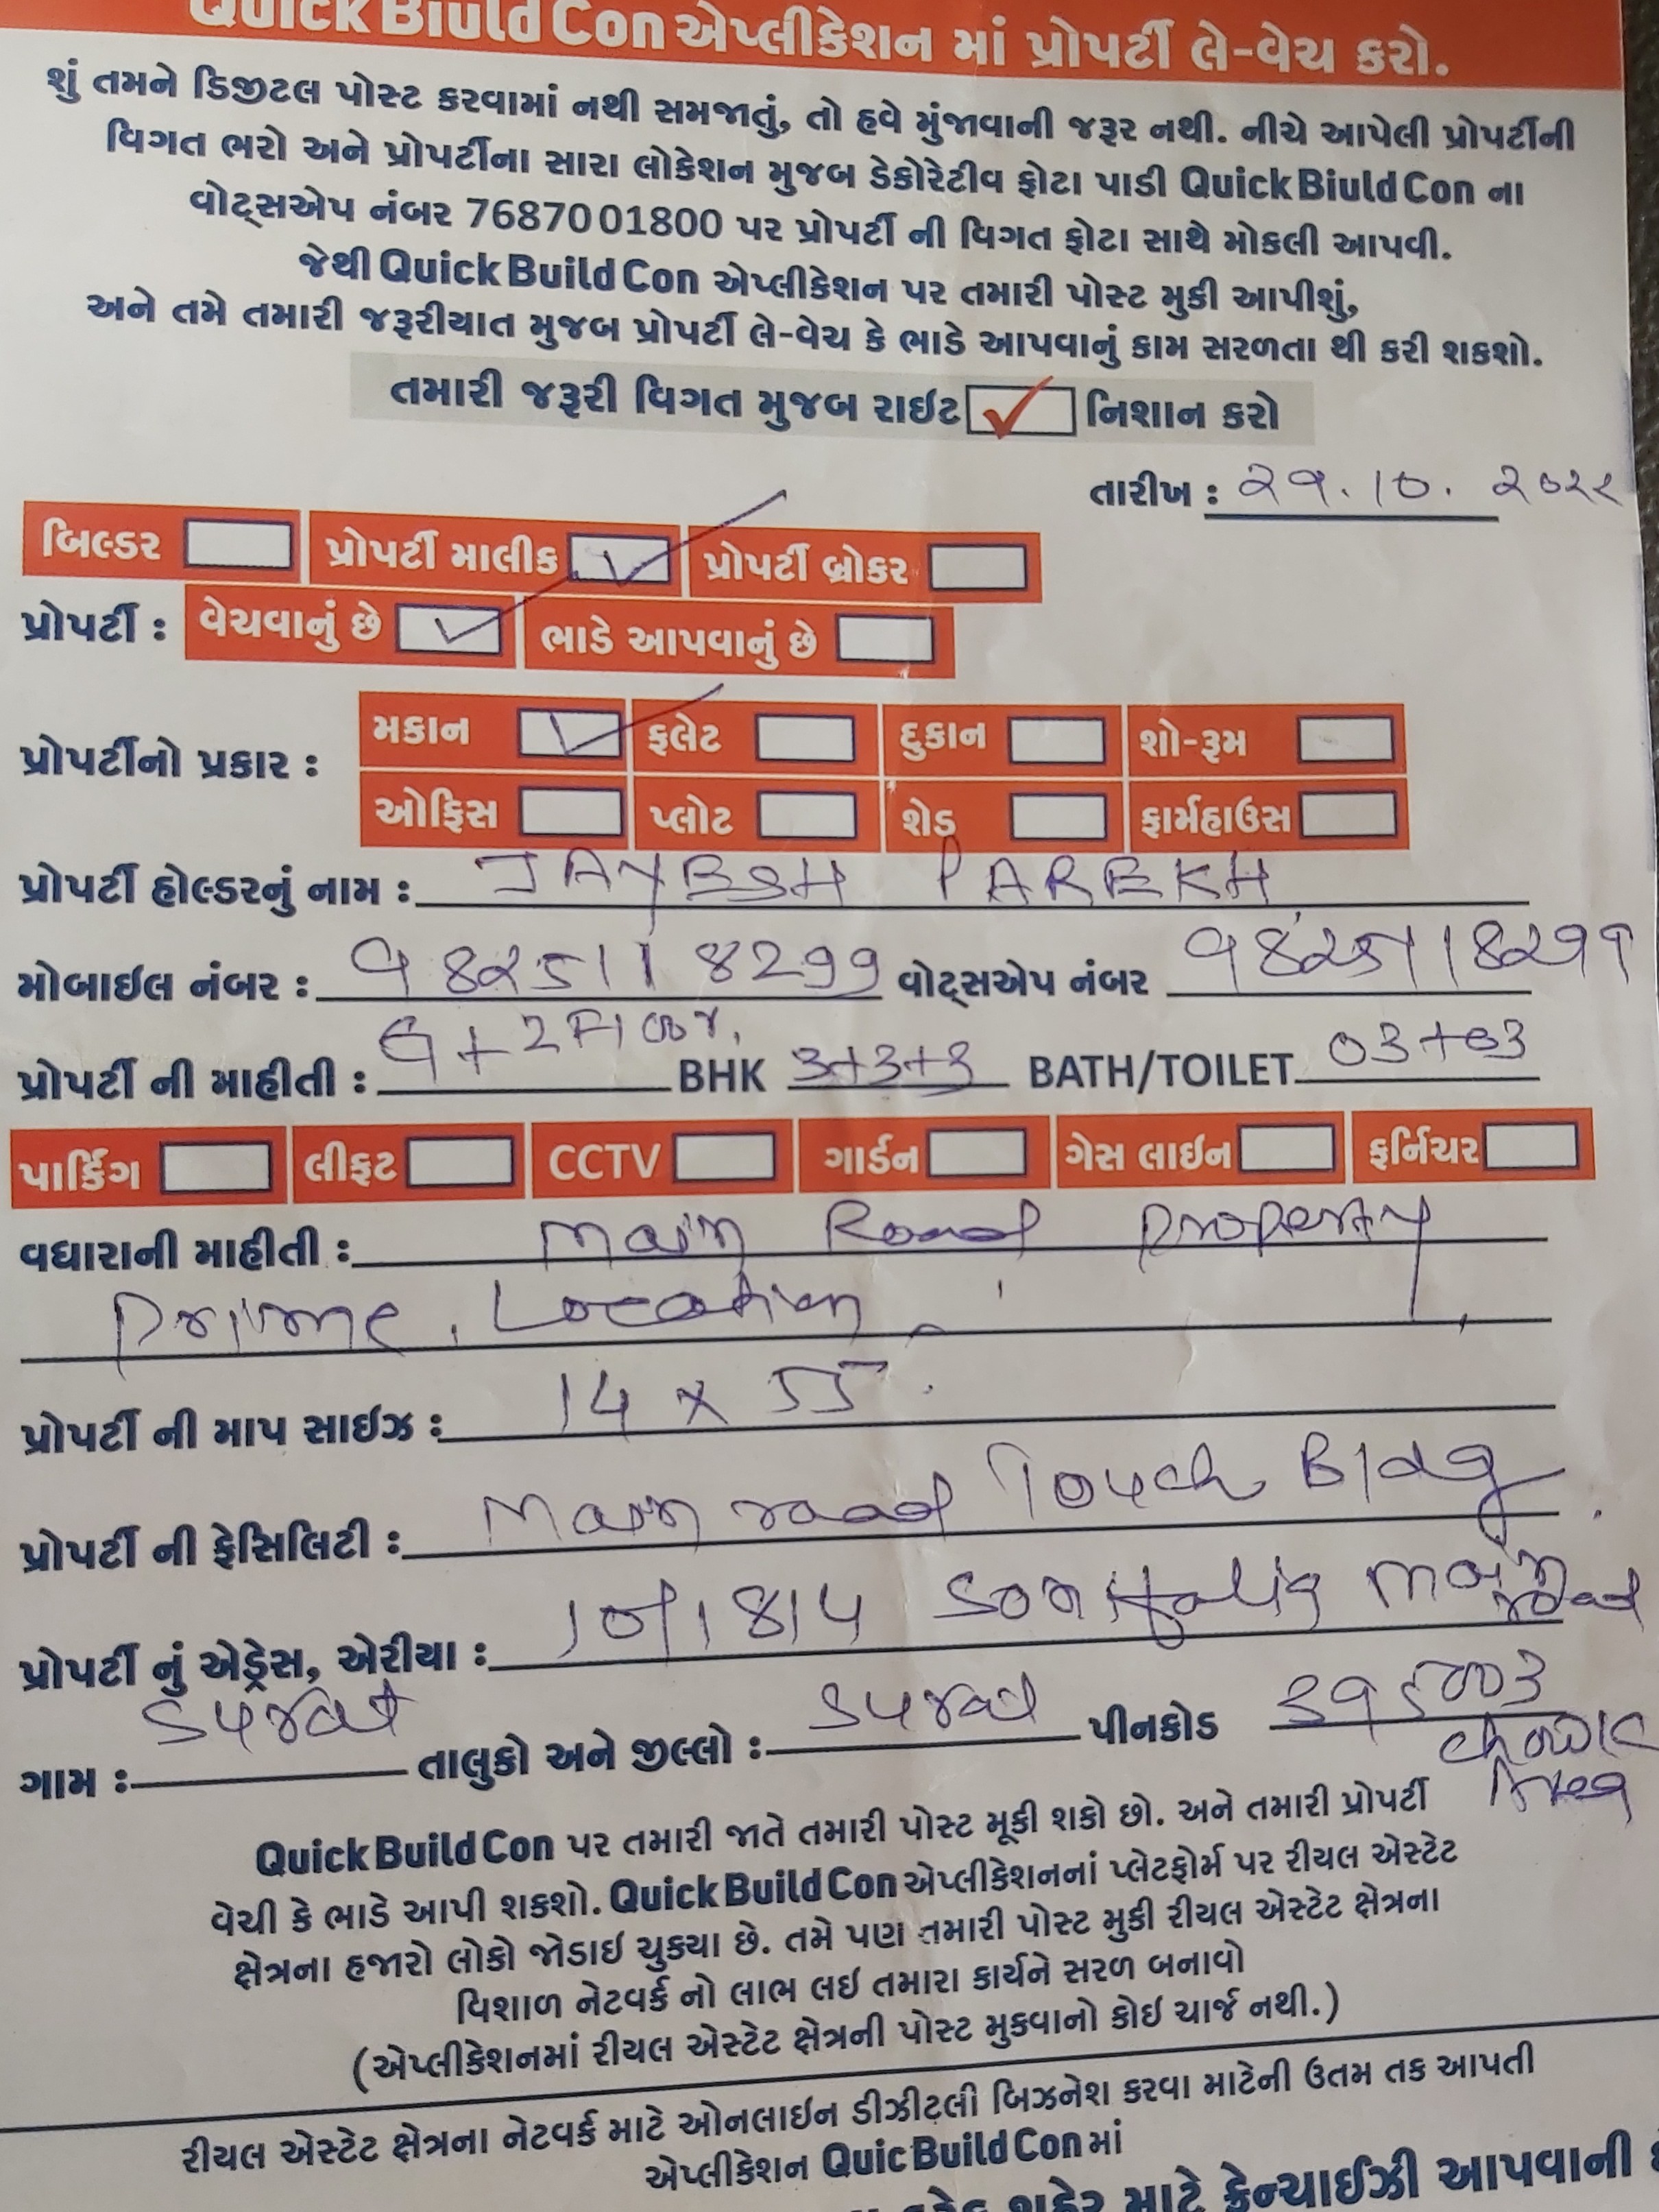 Quick Biuld Con એપ્લીકેશન માં પ્રોપર્ટી લે-વેચ કરો.
શું તમને ડિજીટલ પોસ્ટ કરવામાં નથી સમજાતું, તો હવે મુંજાવાની જરૂર નથી. નીચે આપેલી પ્રોપર્ટીની
વિગત ભરો અને પ્રોપર્ટીના સારા લોકેશન મુજબ ડેકોરેટીવ ફોટા પાડી Quick Biuld Con ના
વોટ્સએપ નંબર 7687001800 પર પ્રોપર્ટી ની વિગત ફોટા સાથે મોકલી આપવી.
જેથી Quick Build Con એપ્લીકેશન પર તમારી પોસ્ટ મુકી આપીશું,
અને તમે તમારી જરૂરીયાત મુજબ પ્રોપર્ટી લે-વેચ કે ભાડે આપવાનું કામ સરળતા થી કરી શકશો.
તમારી જરૂરી વિગત મુજબ રાઈટ ✓ નિશાન કરો
તારીખ : ૨૧.10. ૨૦૨૨
બિલ્ડર પ્રોપર્ટી માલીક ✓ પ્રોપર્ટી બ્રોકર
પ્રોપર્ટી : વેચવાનું છે ✓ ભાડે આપવાનું છે
પ્રોપર્ટીનો પ્રકાર : મકાન ✓ ફ્લેટ દુકાન શો-રૂમ
ઓફિસ પ્લોટ શેડ ફાર્મહાઉસ
પ્રોપર્ટી હોલ્ડરનું નામ : JAYESH PAREKH
મોબાઈલ નંબર : 9825118299 વોટ્સએપ નંબર 9825118299
પ્રોપર્ટી ની માહીતી : G+2 Floor, BHK 3+3+3 BATH/TOILET 03+03
પાર્કિંગ લીફટ CCTV ગાર્ડન ગેસ લાઈન ફર્નિચર
વધારાની માહીતી : Main Road property
Prime. Location
પ્રોપર્ટી ની માપ સાઈઝ : 14 x 55
પ્રોપર્ટી ની ફેસિલિટી : Main road Touch Bldg.
પ્રોપર્ટી નું એડ્રેસ, એરીયા : 10/1814 Main road
ગામ : Surat તાલુકો અને જીલ્લો : Surat પીનકોડ 395003
chowk
Area
Quick Build Con પર તમારી જાતે તમારી પોસ્ટ મૂકી શકો છો. અને તમારી પ્રોપર્ટી
વેચી કે ભાડે આપી શકશો. Quick Build Con એપ્લીકેશનનાં પ્લેટફોર્મ પર રીયલ એસ્ટેટ
ક્ષેત્રના હજારો લોકો જોડાઈ ચુક્યા છે. તમે પણ તમારી પોસ્ટ મુકી રીયલ એસ્ટેટ ક્ષેત્રના
વિશાળ નેટવર્ક નો લાભ લઈ તમારા કાર્યને સરળ બનાવો
(એપ્લીકેશનમાં રીયલ એસ્ટેટ ક્ષેત્રની પોસ્ટ મુકવાનો કોઈ ચાર્જ નથી.)
રીયલ એસ્ટેટ ક્ષેત્રના નેટવર્ક માટે ઓનલાઈન ડીઝીટલી બિઝનેશ કરવા માટેની ઉતમ તક આપતી
એપ્લીકેશન Quic Build Con માં
શહેર માટે ફ્રેન્ચાઈઝી આપવાની